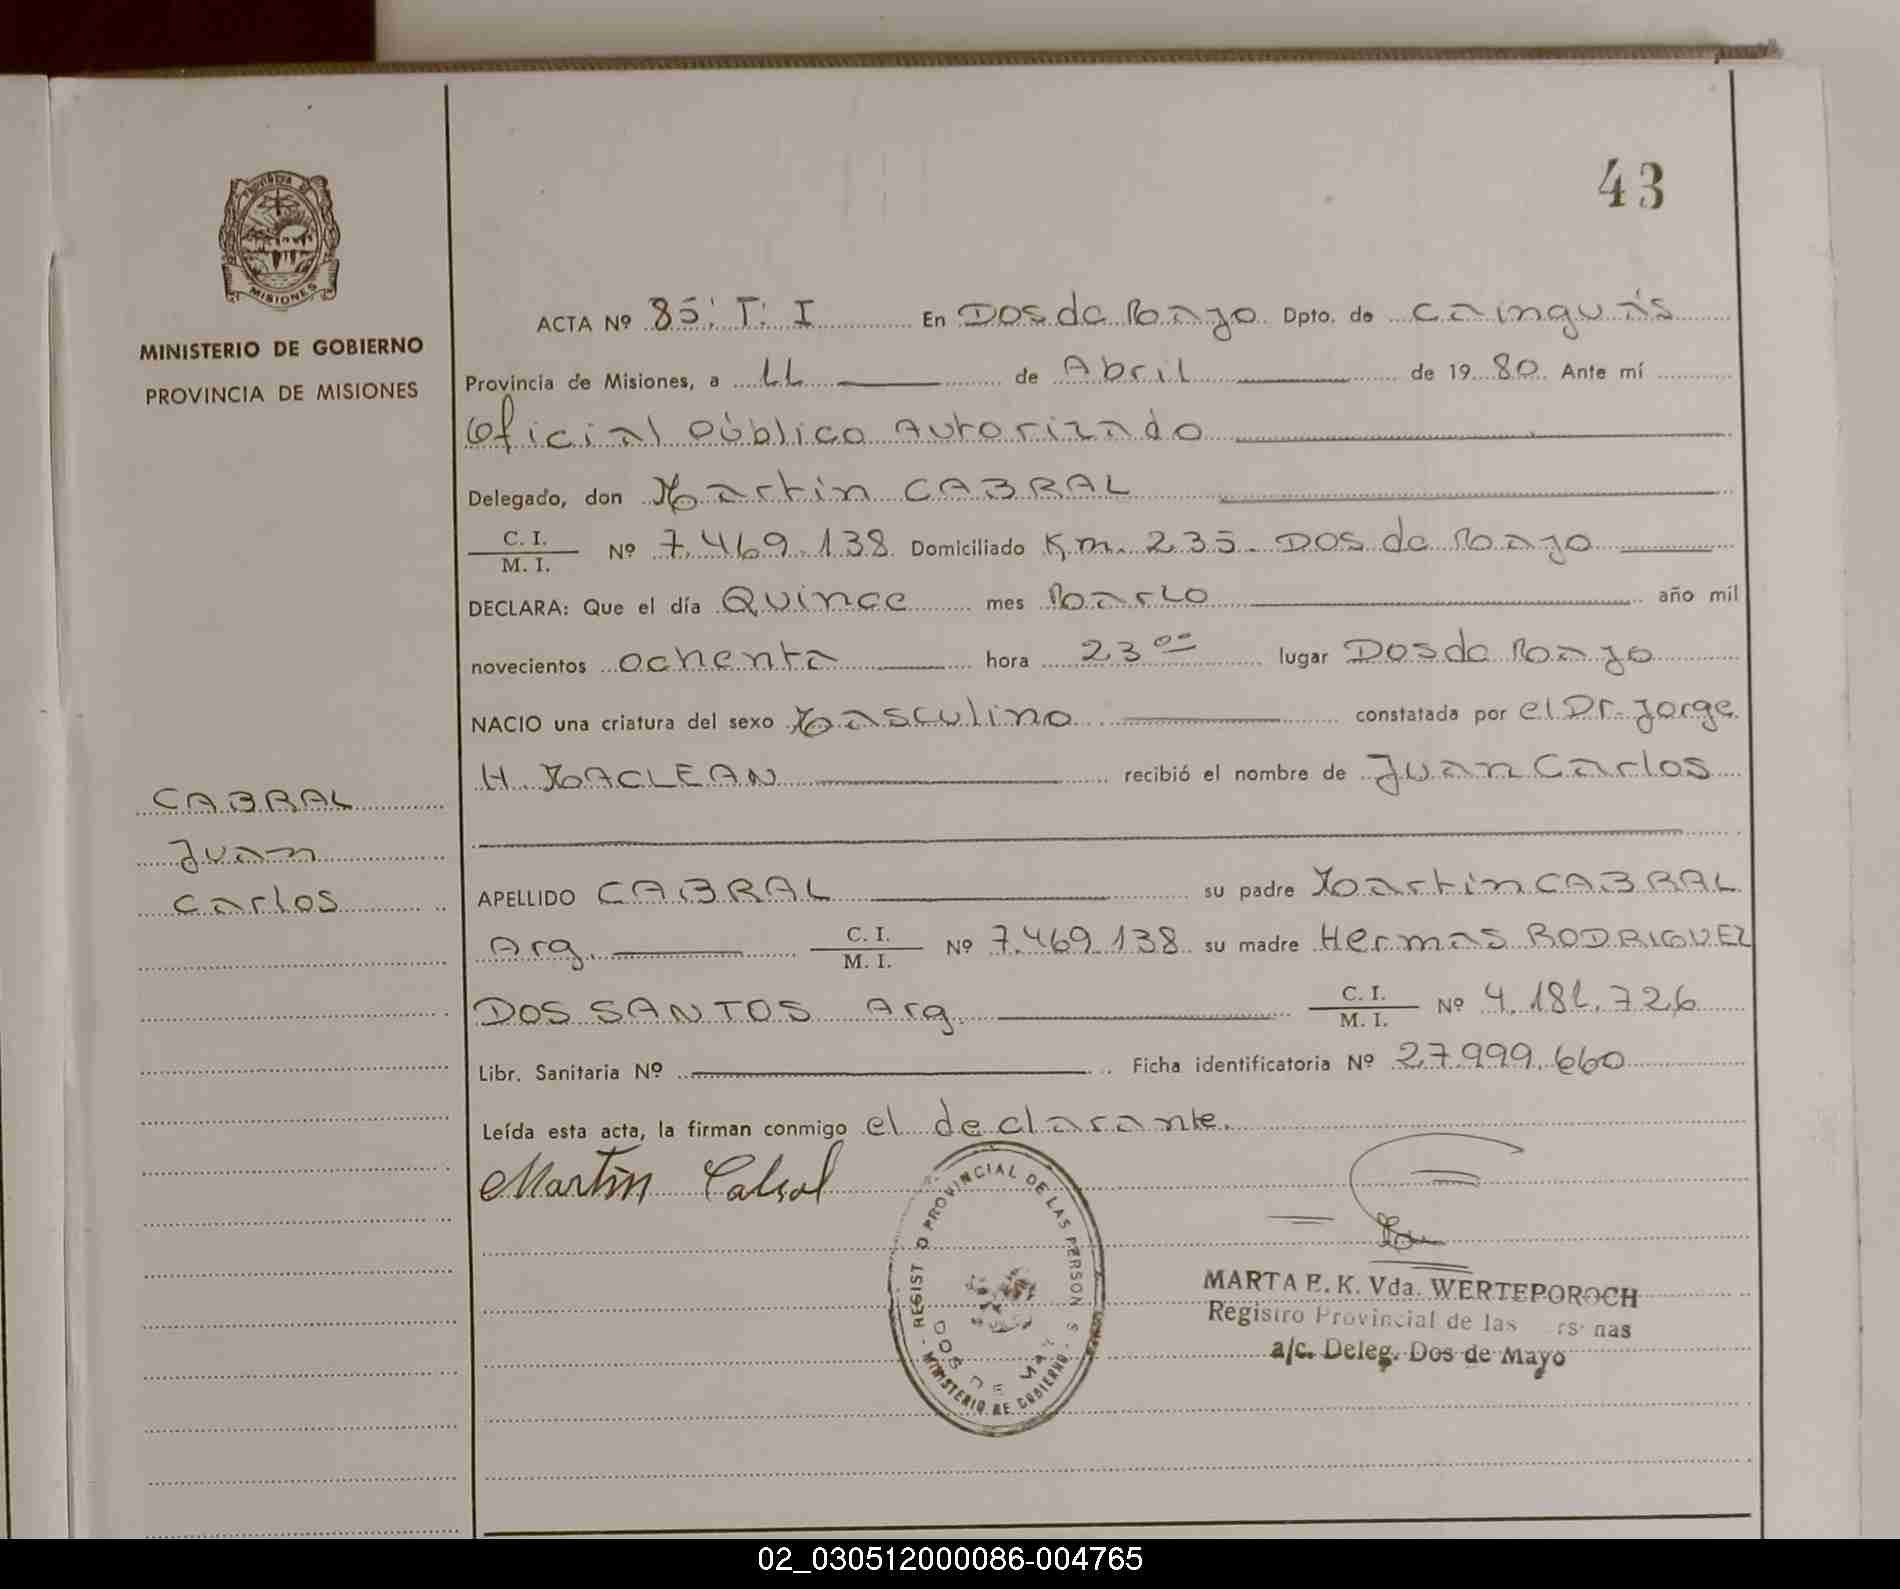 43
PROVINCIA DE
MISIONES
MINISTERIO DE GOBIERNO
PROVINCIA DE MISIONES
ACTA Nº 85: T: I En Dos de Mayo Dpto. de Cainguás
Provincia de Misiones, a 11 de Abril de 1980 Ante mí
Oficial Público Autorizado
Delegado, don Martin CABRAL
C. I. / M. I. Nº 7.469.138 Domiciliado Km. 235. Dos de Mayo
DECLARA: Que el día Quince mes Marzo año mil
novecientos ochenta hora 23 00 lugar Dos de Mayo
NACIO una criatura del sexo Masculino constatada por el Dr. Jorge
H. MACLEAN recibió el nombre de Juan Carlos
CABRAL
Juan
Carlos
APELLIDO CABRAL su padre Martin CABRAL
Arg. C. I. / M. I. Nº 7.469.138 su madre Hermas RODRIGUEZ
DOS SANTOS Arg. C. I. / M. I. Nº 4.181.726
Libr. Sanitaria Nº Ficha identificatoria Nº 27.999.660
Leída esta acta, la firman conmigo el declarante.
Martin Cabral
REGIST O PROVINCIAL DE LAS PERSON S
MINISTERIO DE GOBIERNO
DOS DE MAY
MARTA E. K. Vda. WERTEPOROCH
Registro Provincial de las rs nas
a/c. Deleg. Dos de Mayo
02_030512000086-004765